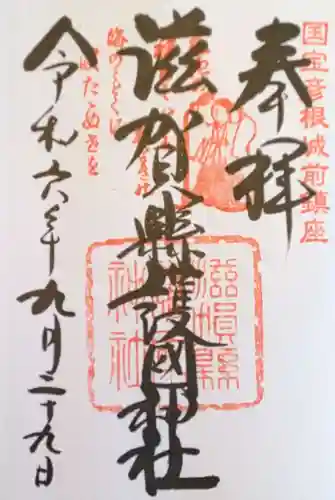 国宝彦根城前鎮座
奉拝
滋賀縣護國神社
滋賀縣護國神社
令和六年九月二十九日